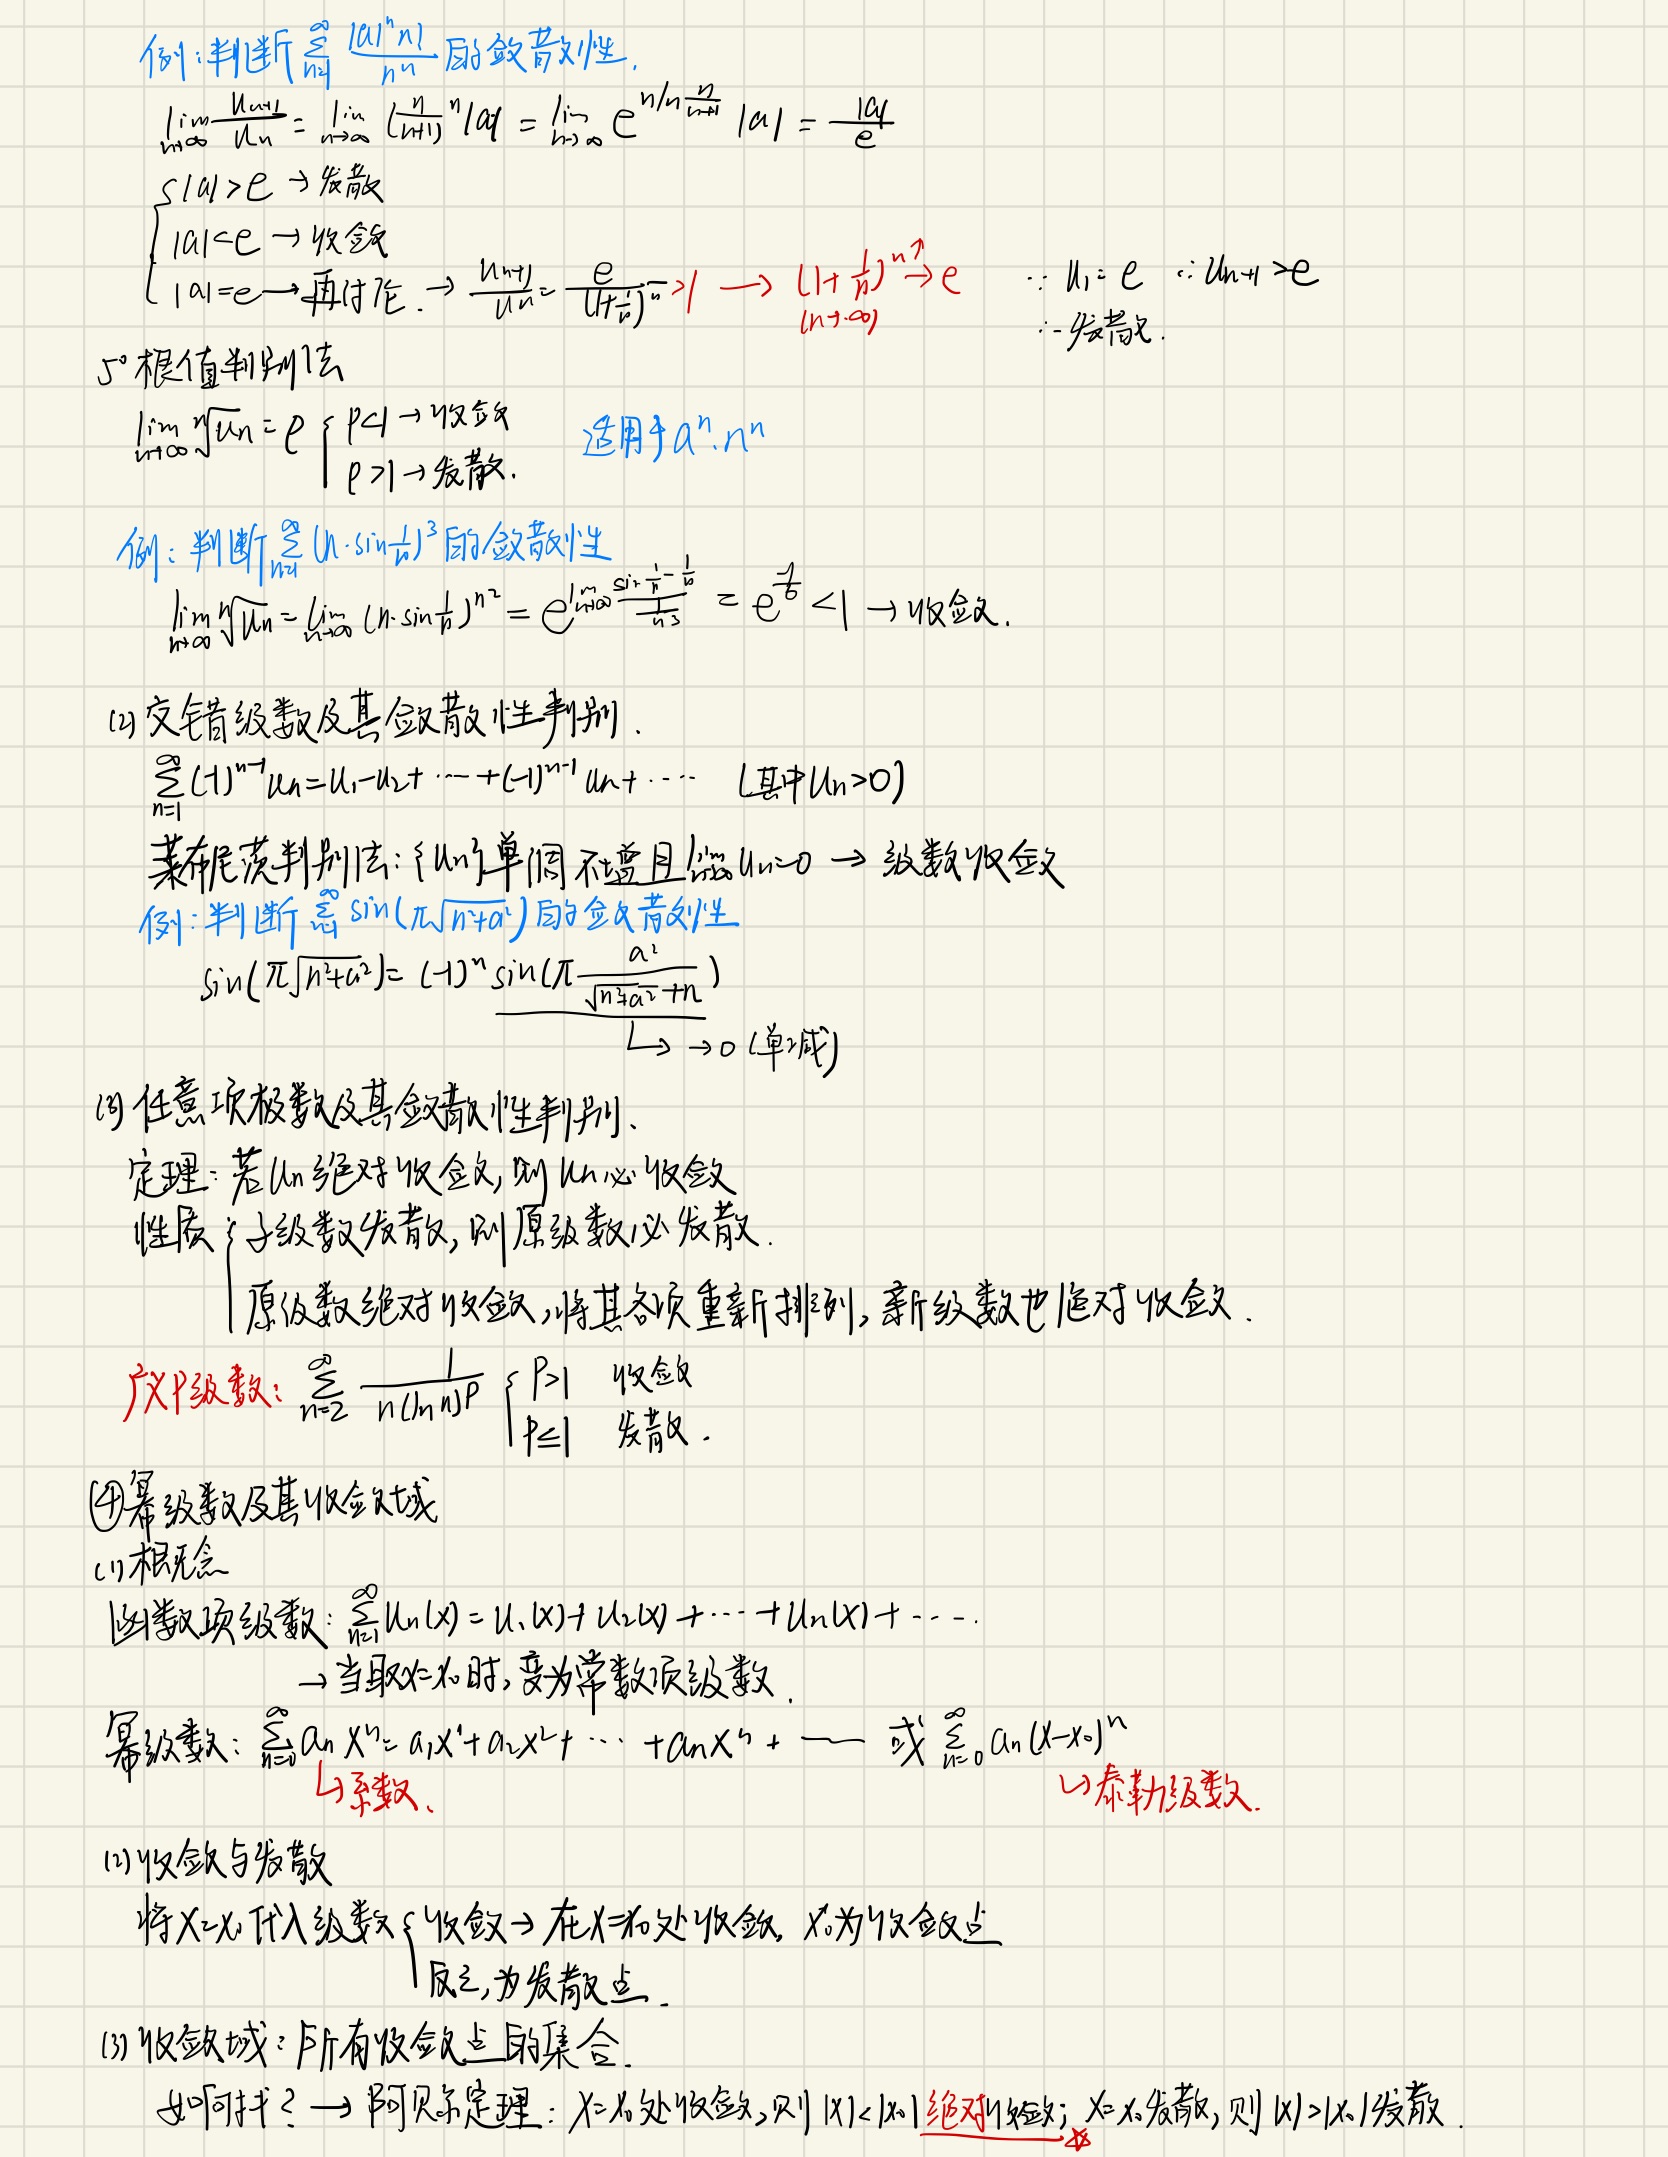 例:判断 ∑_{n=1}^{∞} |a|ⁿn!/nⁿ 的敛散性.
lim_{n→∞} u_{n+1}/u_n = lim_{n→∞} (n/(n+1))ⁿ|a| = lim_{n→∞} e^{n ln n/(n+1)} |a| = |a|/e
{ |a|>e → 发散
|a|<e → 收敛
|a|=e → 再讨论. → u_{n+1}/u_n = e/(1+1/n)ⁿ >1 → (1+1/n)ⁿ↑→e (n→∞) ∵ u₁=e ∴ u_{n+1}>e
∴ 发散.
5° 根值判别法
lim_{n→∞} ⁿ√u_n = ρ { ρ<1 → 收敛
ρ>1 → 发散. 适用于aⁿ.nⁿ
例: 判断 ∑_{n=1}^{∞} (n·sin 1/n)³ 的敛散性
lim_{n→∞} ⁿ√u_n = lim_{n→∞} (n·sin 1/n)^{n²} = e^{lim_{n→∞} (sin 1/n − 1/n)/(1/n³)} = e^{-1/6} <1 → 收敛.
(2) 交错级数及其敛散性判别.
∑_{n=1}^{∞} (-1)^{n-1} u_n = u₁-u₂+ ⋯ +(-1)^{n-1} u_n + ⋯⋯ (其中u_n>0)
莱布尼茨判别法: {u_n}单调不增且 lim_{n→∞} u_n=0 → 级数收敛
例:判断 ∑_{n=1}^{∞} sin(π√(n²+a²)) 的敛散性
sin(π√(n²+a²)) = (-1)ⁿ sin(π a²/(√(n²+a²)+n))
↳ →0 (单减)
(3) 任意项极数及其敛散性判别、
定理: 若u_n绝对收敛,则u_n必收敛
性质 { 子级数发散,则原级数必发散.
原级数绝对收敛,将其各项重新排列,新级数也绝对收敛.
广义P级数: ∑_{n=2}^{∞} 1/(n(ln n)^p) { p>1 收敛
p≤1 发散.
④幂级数及其收敛域
(1) 概念
函数项级数: ∑_{n=1}^{∞} u_n(x) = u₁(x)+u₂(x)+⋯+u_n(x)+⋯.
→ 当取x=x₀时,变为常数项级数.
幂级数: ∑_{n=0}^{∞} a_n xⁿ = a₁x¹+a₂x²+ ⋯ +a_n xⁿ + ⋯ 或 ∑_{n=0}^{∞} a_n(x-x₀)ⁿ
↳系数、 ↳泰勒级数.
(2) 收敛与发散
将x=x₀代入级数 { 收敛 → 在x=x₀处收敛, x₀为收敛点
反之,为发散点.
(3) 收敛域: 所有收敛点的集合.
如何找? → 阿贝尔定理: x=x₀处收敛,则|x|<|x₀|绝对收敛; x=x₀发散,则|x|>|x₀|发散.